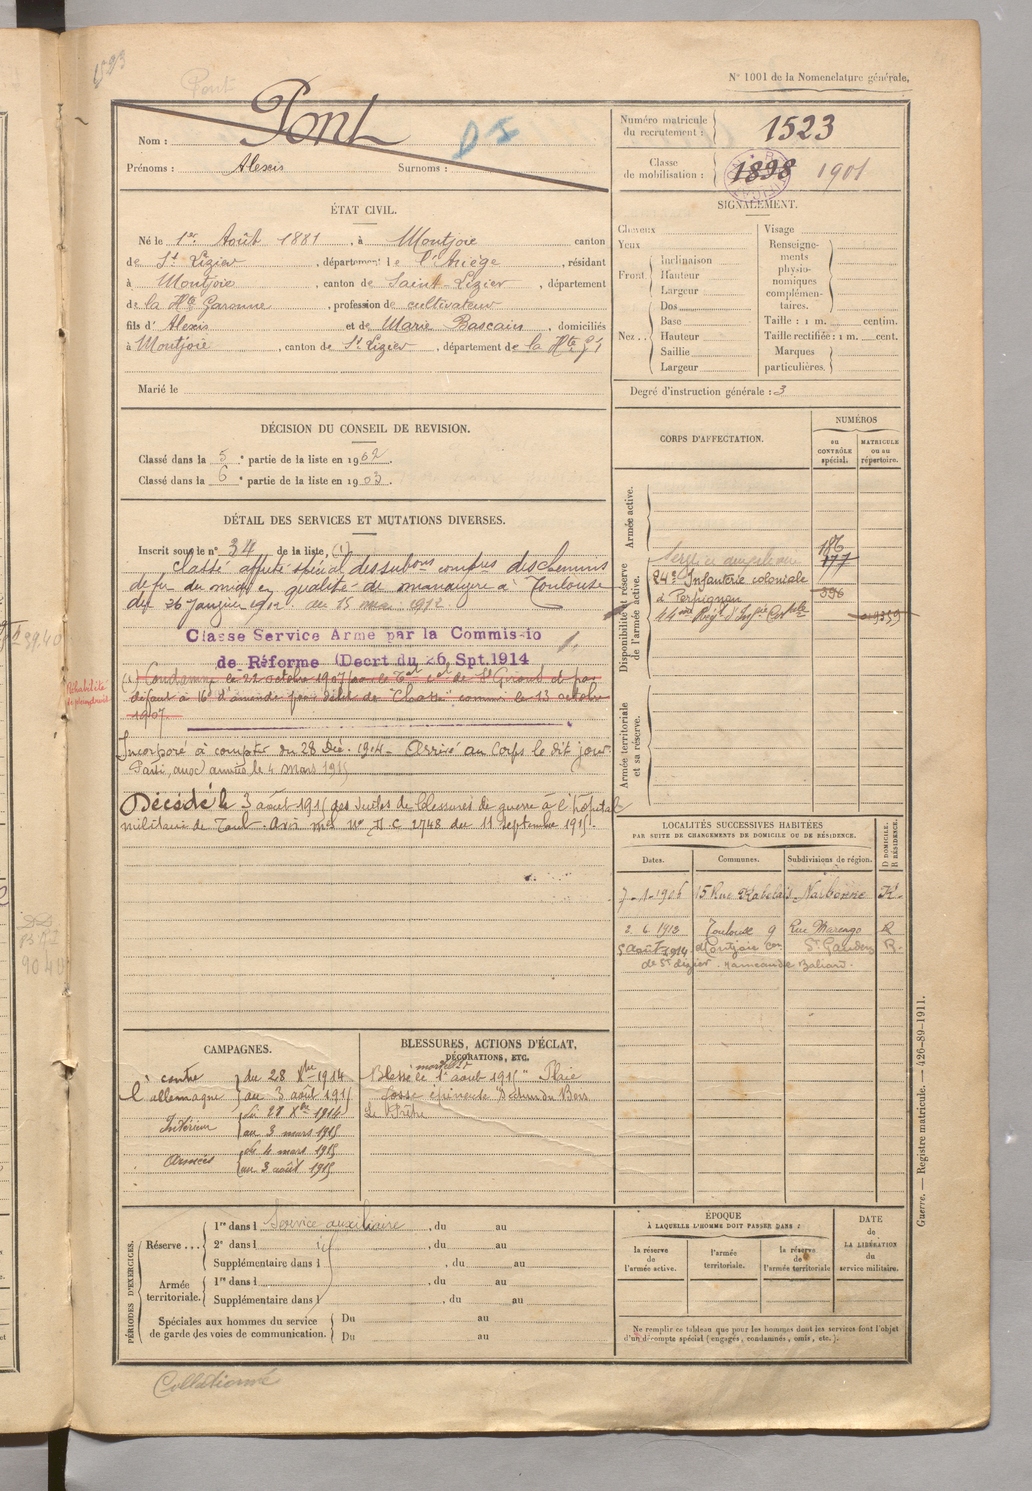 1523
Pont
N° 1001 de la Nomenclature générale.
Nom : Pont
DS
Prénoms : Alexis Surnoms :
Numéro matricule du recrutement : 1523
Classe de mobilisation : 1898 1901
ÉTAT CIVIL.
Né le 1er Août 1881, à Montjoie canton
de St Lizier, département de l'Ariège, résidant
à Montjoie, canton de Saint-Lizier, département
de la Hte Garonne, profession de cultivateur
fils d' Alexis et de Marie Bascain, domiciliés
à Montjoie, canton de St Lizier, département de la Hte G
Marié le
SIGNALEMENT.
Cheveux
Yeux
Front. Inclinaison
Hauteur
Largeur
Nez.. Dos
Base
Hauteur
Saillie
Largeur
Visage
Renseignements physionomiques complémentaires.
Taille : 1 m. centim.
Taille rectifiée : 1 m. cent.
Marques particulières.
Degré d'instruction générale : 3
DÉCISION DU CONSEIL DE REVISION.
Classé dans la 5e partie de la liste en 1902.
Classé dans la 6e partie de la liste en 1903.
DÉTAIL DES SERVICES ET MUTATIONS DIVERSES.
Inscrit sous le n° 34 de la liste, (1)
Classé affecté spécial des subons compres des chemins
de fer du midi en qualité de manœuvre à Toulouse
du 26 Janvier 1912 au 15 mai 1912.
Classe Service Arme par la Commis-io
de Réforme (Decrt du 26 Spt.1914
(1) Condamné le 22 octobre 1907 par le Tal cel de St Girons et par
défaut à 16f d'amende pour délit de "Chasse" commis le 13 octobre
1907.
Réhabilité
Incorporé à compter du 28 Déc. 1914 - Arrivé au Corps le dit jour.
Parti aux armées le 4 mars 1915
Décédé le 3 août 1915 des suites de blessures de guerre à l'hôpital
militaire de Toul. Avis mel No D.C 2748 du 11 septembre 1915.
CORPS D'AFFECTATION.
NUMÉROS
au CONTRÔLE spécial.
MATRICULE ou au répertoire.
Armée active.
Disponibilité et réserve de l'armée active.
186
177
24e Infanterie coloniale
à Perpignan 396
44me Régt d'Infie Cole 9359
Armée territoriale et sa réserve.
LOCALITÉS SUCCESSIVES HABITÉES
PAR SUITE DE CHANGEMENTS DE DOMICILE OU DE RÉSIDENCE.
Dates. Communes. Subdivisions de région. D DOMICILE. R RÉSIDENCE.
7-1-1906 15 Rue Rabelais Narbonne R.
2. 6. 1912 Toulouse 9 Rue Marengo R
5 août 1914 Montjoie con St Gaudens R.
de St Lizier. hameau de Baliard.
CAMPAGNES.
contre l'allemagne du 28 Xbre 1914
au 3 août 1915
Intérieur du 28 Xbre 1914
au 3 mars 1915
Armées du 4 mars 1915
au 3 août 1915
BLESSURES, ACTIONS D'ÉCLAT,
DÉCORATIONS, ETC.
Blessé le 1er août 1915 "Plaie
fosse épineuse
Le Prêtre
PÉRIODES D'EXERCICES.
Réserve... 1re dans l Service auxiliaire, du au
2e dans l, du au
Supplémentaire dans l, du au
Armée territoriale. 1re dans l, du au
Supplémentaire dans l, du au
Spéciales aux hommes du service de garde des voies de communication. Du au
Du au
ÉPOQUE
À LAQUELLE L'HOMME DOIT PASSER DANS :
la réserve de l'armée active.
l'armée territoriale.
la réserve de l'armée territoriale
DATE de LA LIBÉRATION du service militaire.
Ne remplir ce tableau que pour les hommes dont les services font l'objet
d'un décompte spécial (engagés, condamnés, omis, etc.).
Guerre. — Registre matricule. — 426-89-1911.
Collationné